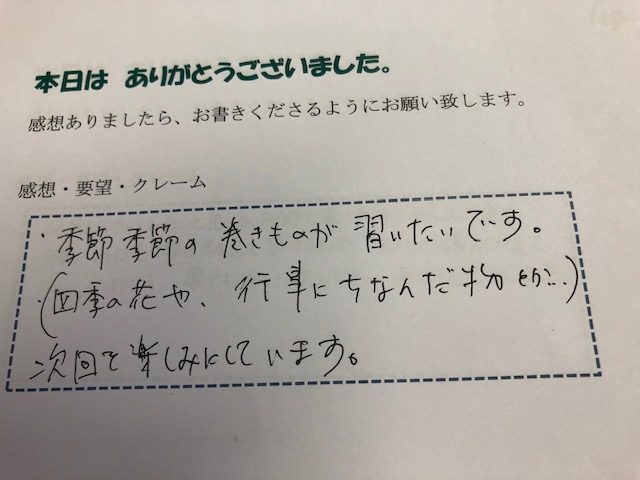 本日は ありがとうございました。
感想ありましたら、お書きくださるようにお願い致します。
感想・要望・クレーム
・季節季節の巻きものが習いたいです。
(四季の花や、行事にちなんだ物とか…)
次回も楽しみにしています。